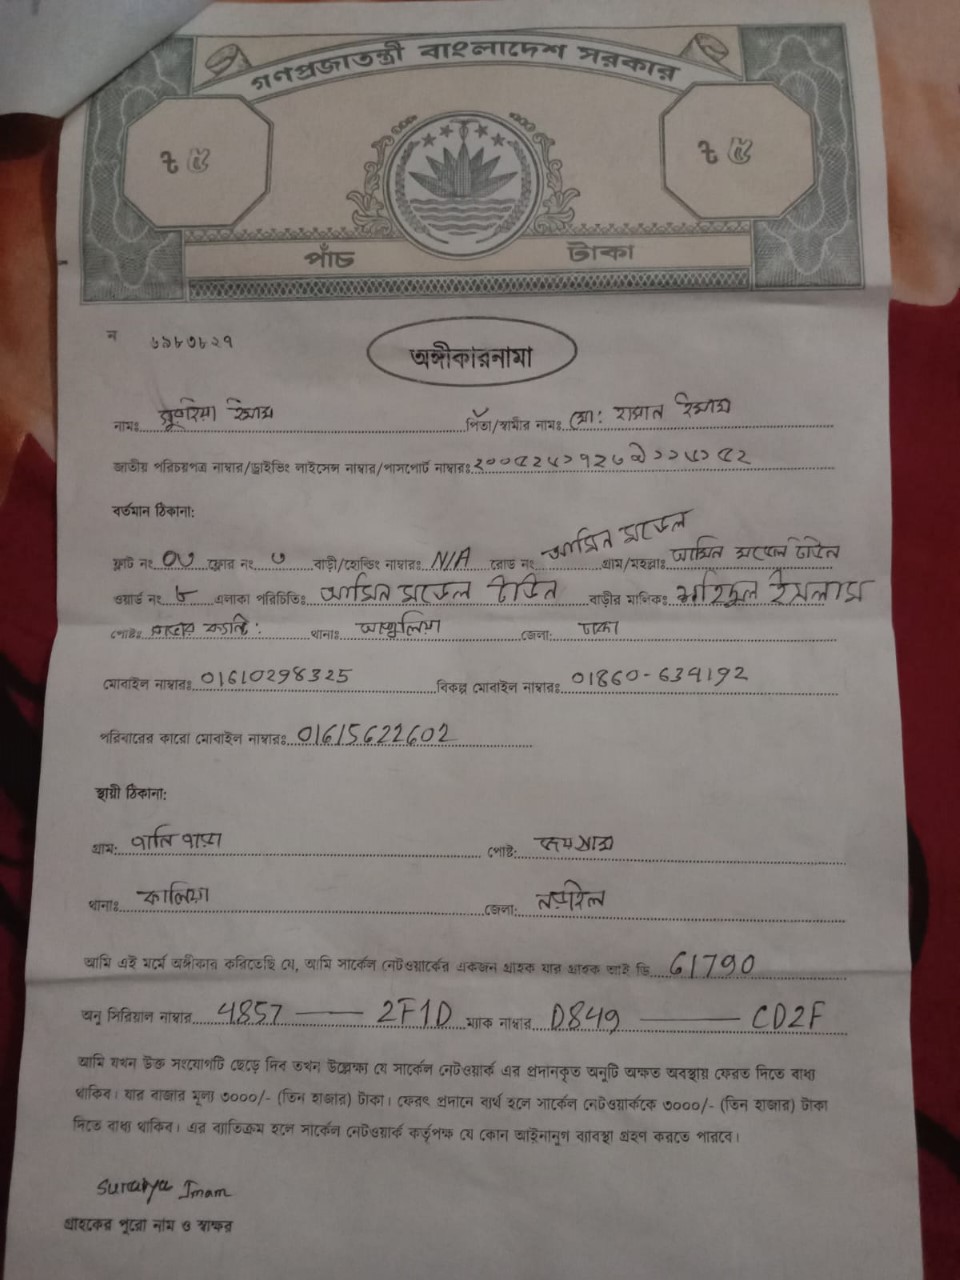 গণপ্রজাতন্ত্রী বাংলাদেশ সরকার
৳ ৫ ৳ ৫
পাঁচ টাকা
ন ৬৯৮৩৮২৭
অঙ্গীকারনামা
নামঃ সুরাইয়া ইমাম পিতা/স্বামীর নামঃ মো: হাসান ইমাম
জাতীয় পরিচয়পত্র নাম্বার/ড্রাইভিং লাইসেন্স নাম্বার/পাসপোর্ট নাম্বারঃ
বর্তমান ঠিকানা:
ফ্লাট নং ০৩ ফ্লোর নং ৩ বাড়ী/হোল্ডিং নাম্বারঃ N/A রোড নং আমিন মডেল গ্রাম/মহল্লাঃ আমিন মডেল টাউন
ওয়ার্ড নং ৮ এলাকা পরিচিতিঃ আমিন মডেল টাউন বাড়ীর মালিকঃ ইসলাম
পোষ্টঃ থানাঃ আশুলিয়া জেলা: ঢাকা
মোবাইল নাম্বারঃ 01610298325 বিকল্প মোবাইল নাম্বারঃ 01860-634192
পরিবারের কারো মোবাইল নাম্বারঃ 01615622602
স্থায়ী ঠিকানা:
গ্রাম: পোষ্ট:
থানাঃ কালিয়া জেলা: নড়াইল
আমি এই মর্মে অঙ্গীকার করিতেছি যে, আমি সার্কেল নেটওয়ার্কের একজন গ্রাহক যার গ্রাহক আই ডি 61790
অনু সিরিয়াল নাম্বার 4857 — 2F1D ম্যাক নাম্বার D849 — CD2F
আমি যখন উক্ত সংযোগটি ছেড়ে দিব তখন উল্লেক্ষ্য যে সার্কেল নেটওয়ার্ক এর প্রদানকৃত অনুটি অক্ষত অবস্থায় ফেরত দিতে বাধ্য
থাকিব। যার বাজার মূল্য ৩০০০/- (তিন হাজার) টাকা। ফেরৎ প্রদানে ব্যর্থ হলে সার্কেল নেটওয়ার্ককে ৩০০০/- (তিন হাজার) টাকা
দিতে বাধ্য থাকিব। এর ব্যাতিক্রম হলে সার্কেল নেটওয়ার্ক কর্তৃপক্ষ যে কোন আইনানুগ ব্যাবস্থা গ্রহণ করতে পারবে।
Suraiya Imam
গ্রাহকের পুরো নাম ও স্বাক্ষর